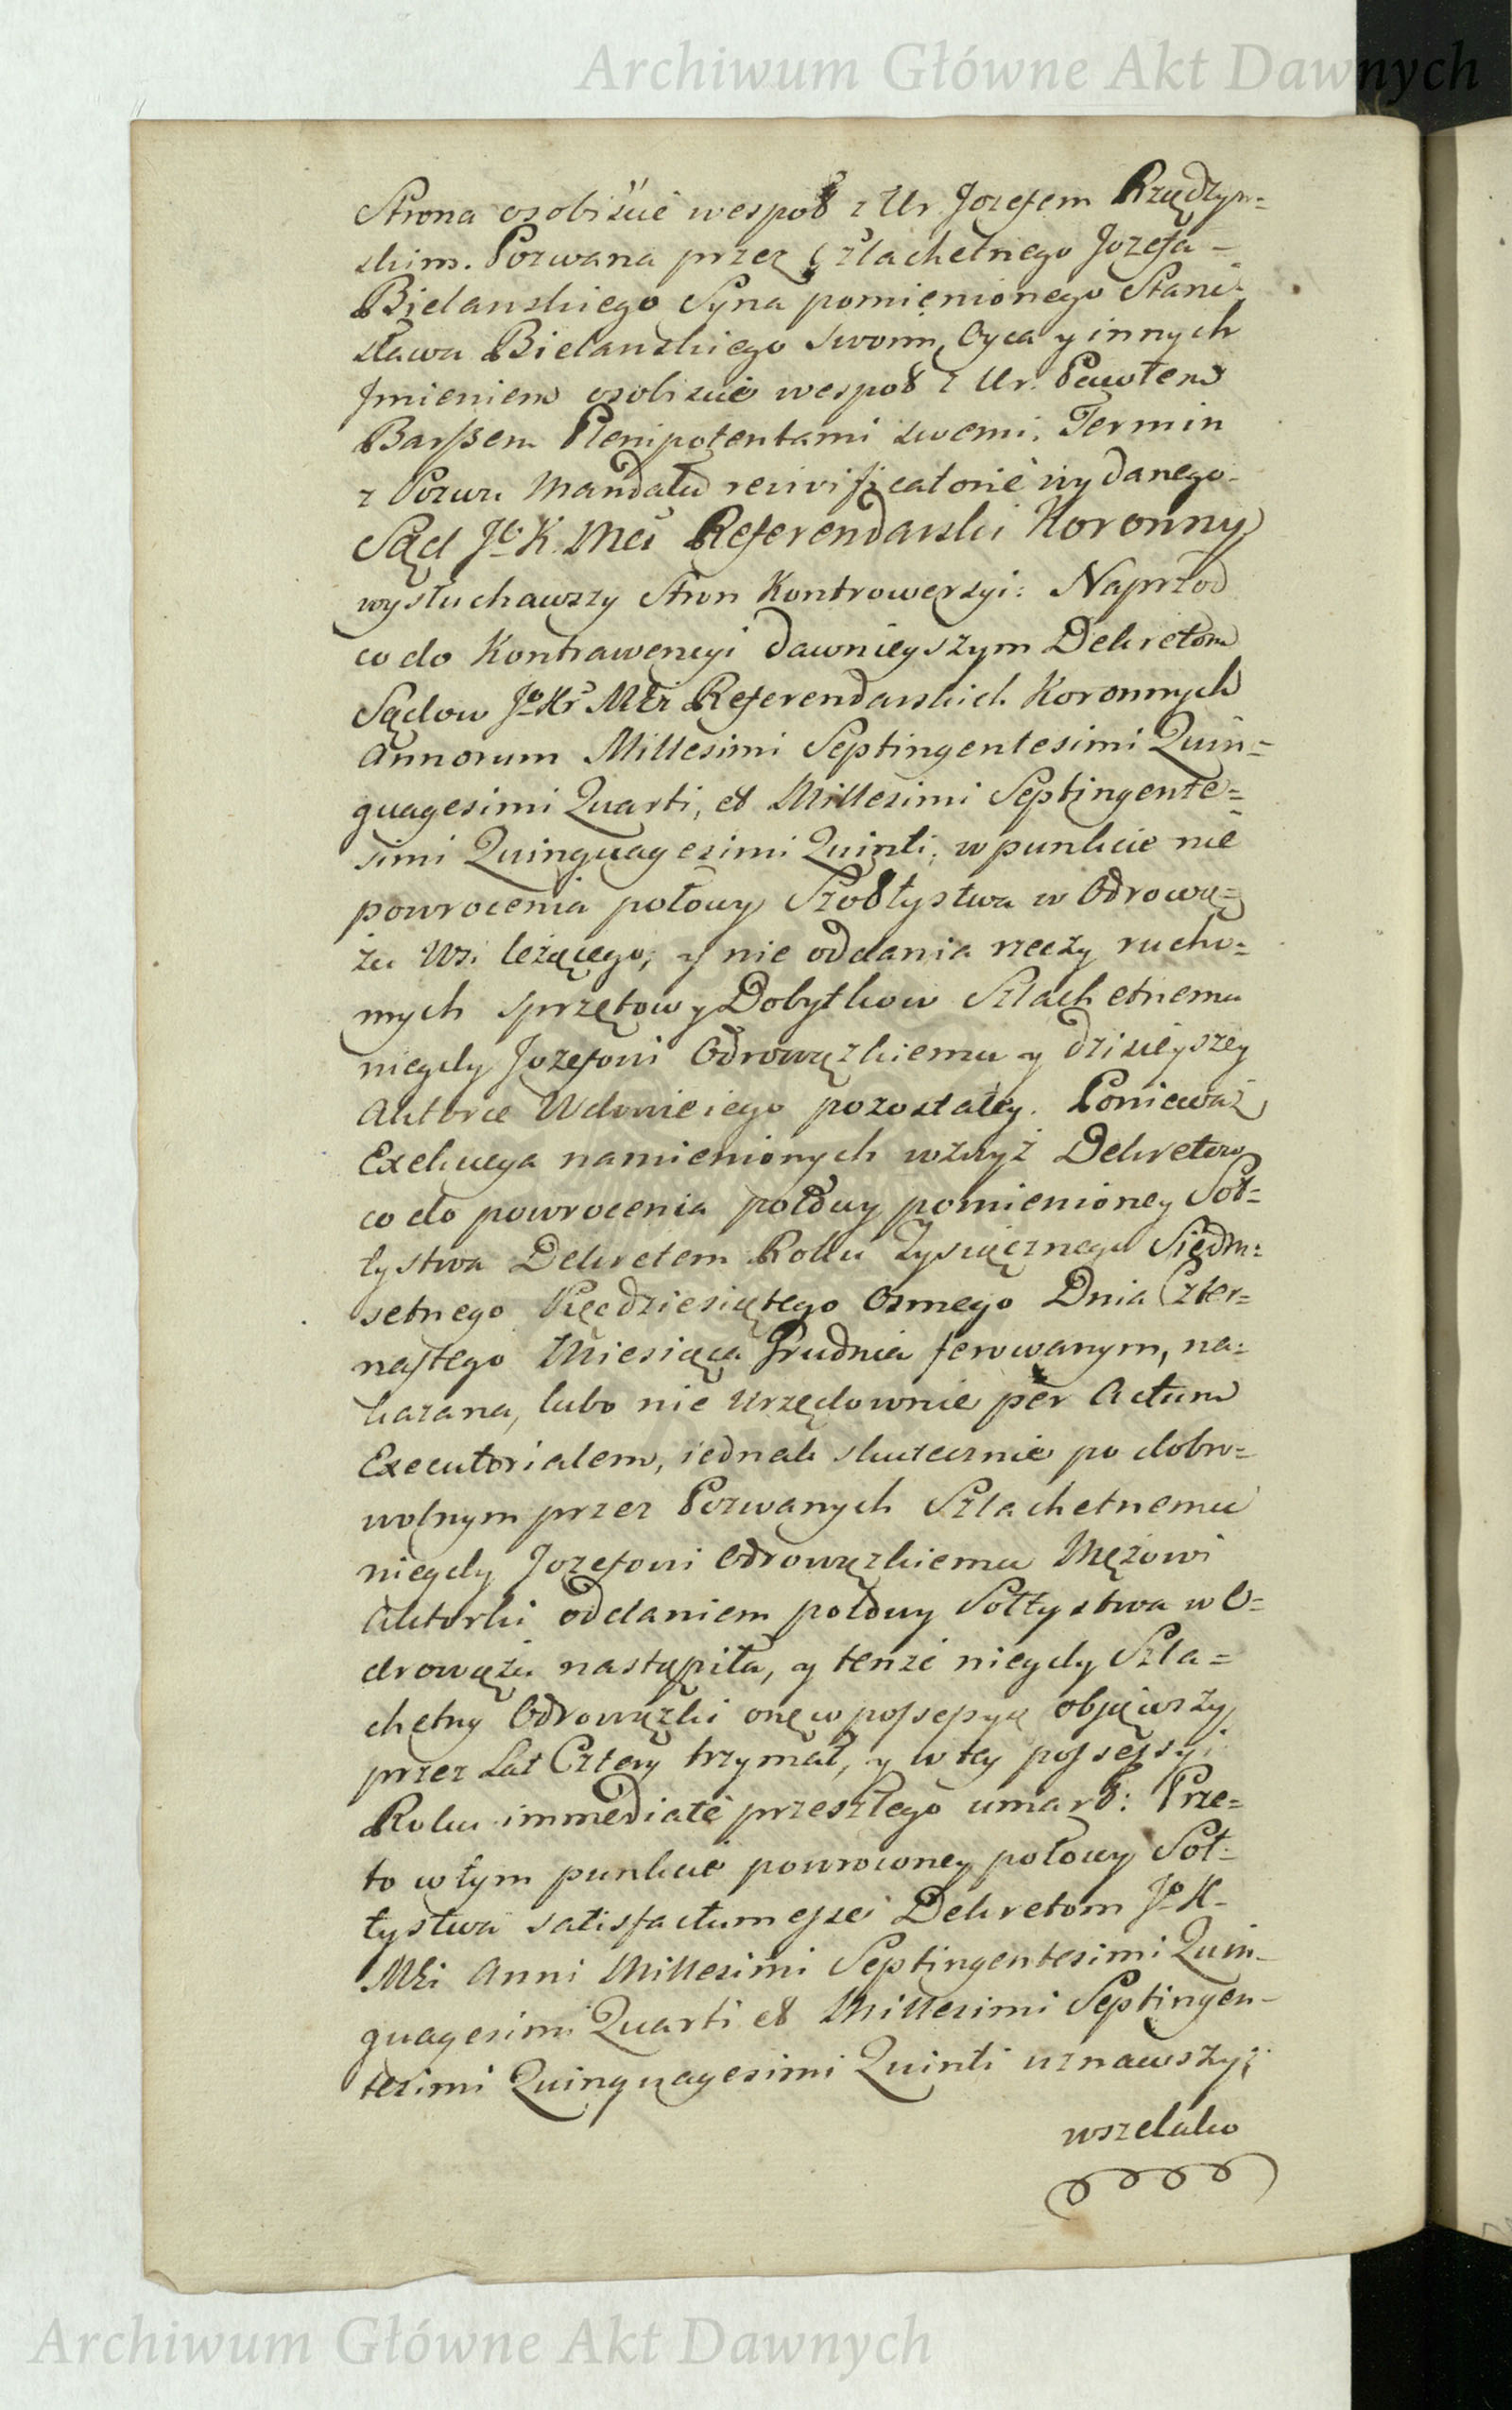 Archiwum Główne Akt Dawnych
Strona osobiście wespoł z Ur. Jozefem Rzędzyn=
skim. Pozwana przez Szlachetnego Jozefa
Bielanskiego Syna pomienionego Stani=
sława Bielanskiego swoim, Oyca y innych
Jmieniem osobiście wespoł z Ur. Pawłem
Barssem Plenipotentami swemi. Termin
z Pozwu Mandatu reivificatorie wydanego.
Sąd Jo K. Mci Referendarski Koronny
wysłuchawszy Stron Kontrowersyi: Naprzod
co do Kontrawencyi dawnieyszym Dekretom
Sądow Jo Kr Mci Referendarskich Koronnych
Annorum Millesimi Septingentesimi Quin=
quagesimi Quarti, et Millesimi Septingente=
simi Quinquagesimi Quinti, w punkcie nie
powrocenia połowy Szołtystwa w Odrową=
żu Wsi leżącego, y nie oddania rzeczy rucho=
mych sprzętow y Dobytkow Szlachetnemu
niegdy Jozefowi Odrowązkiemu y dzisieyszey
Aktorce Wdowie iego pozostałey. Ponieważ
Exekucya namienionych wzwyż Dekretow
co do powrocenia połowy pomienioney Soł=
tystwa Dekretem Roku Tysiącznego Siedm=
setnego Pięcdziesiątego Osmego Dnia Czter=
nastego Miesiąca Grudnia ferowanym, na=
kazana, lubo nie Urzędownie per Actum
Executorialem, iednak skutecznie po dobro=
wolnym przez Pozwanych Szlachetnemu
niegdy Jozefowi Odrowązkiemu Mężowi
Aktorki oddaniem połowy Sołtystwa w O=
drowążu nastąpiła, y tenże niegdy Szla=
chetny Odrowązki onę w possessyą objąwszy
przez Lat Cztery trzymał, y w tey possessyi
Roku immediate przeszłego umarł: Prze=
to w tym punkcie powroconey połowy Soł=
tystwa satisfactum esse Dekretom Jo K.
Mci Anni Millesimi Septingentesimi Quin=
quagesimi Quarti et Millesimi Septingen=
tesimi Quinquagesimi Quinti uznawszy;
wszelako
Archiwum Główne Akt Dawnych